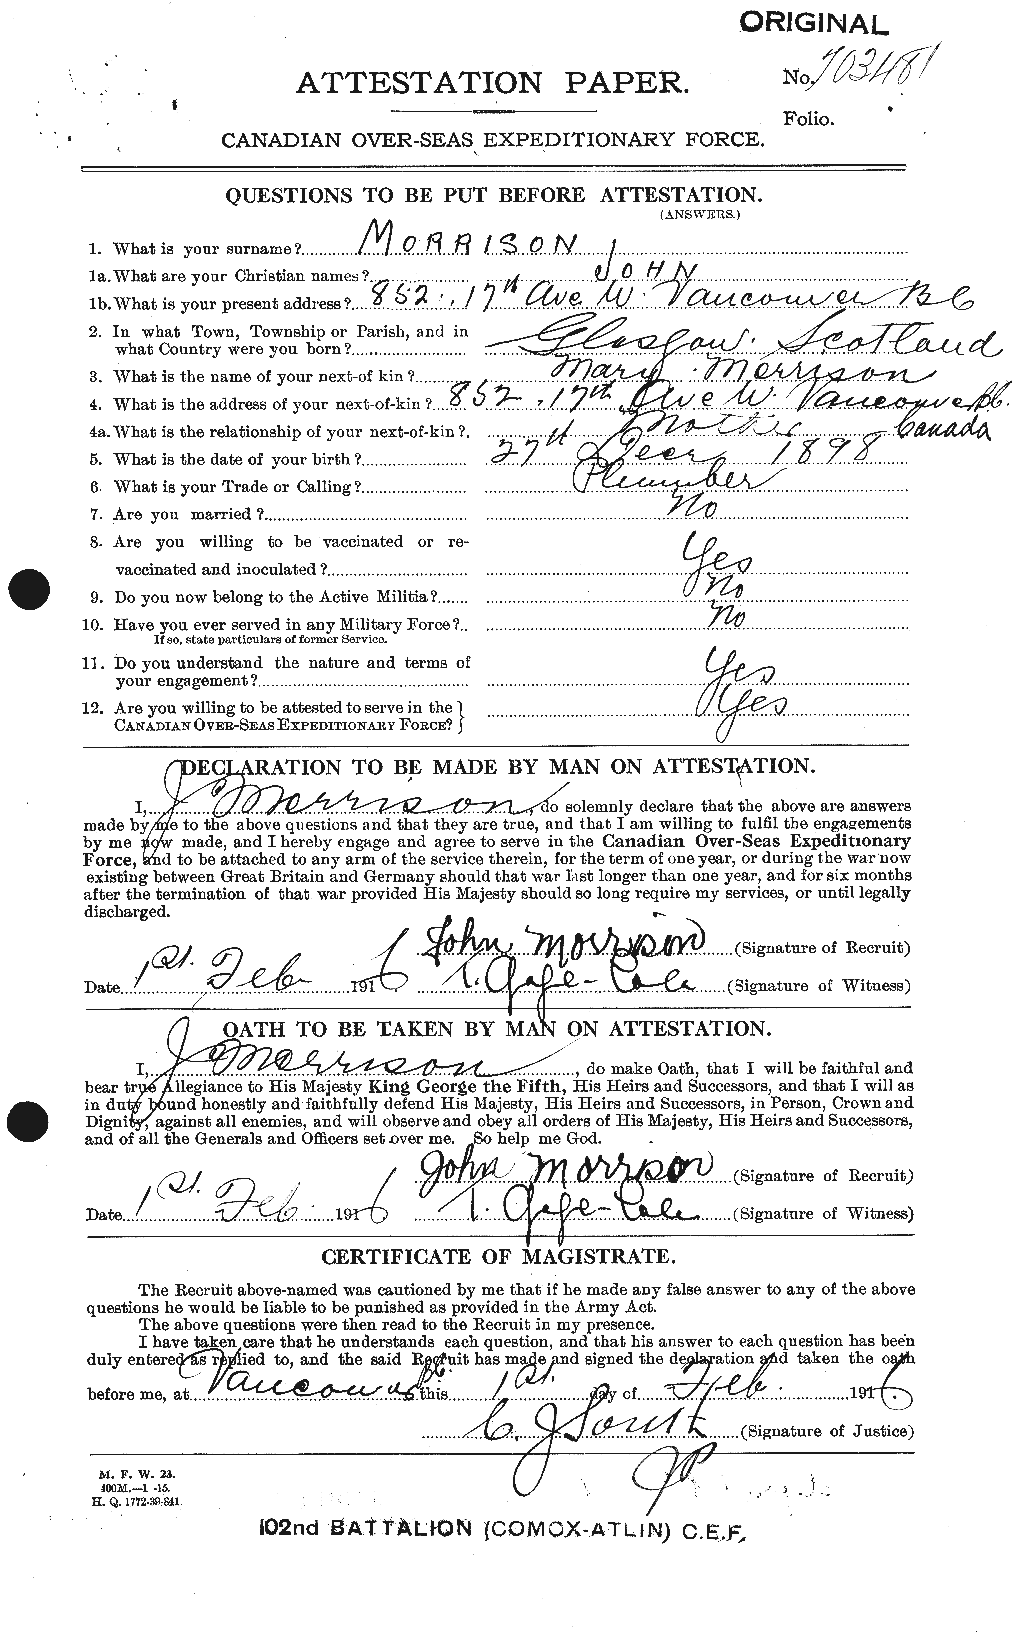 ORIGINAL
No. 703481
ATTESTATION PAPER.
Folio.
CANADIAN OVER-SEAS EXPEDITIONARY FORCE.
QUESTIONS TO BE PUT BEFORE ATTESTATION.
(ANSWERS.)
1. What is your surname?..... MORRISON
1a. What are your Christian names?..... JOHN
1b. What is your present address?..... 852. 17th Ave W. Vancouver BC
2. In what Town, Township or Parish, and in
what Country were you born?..... Glasgow. Scotland
3. What is the name of your next-of kin?..... Mary Morrison
4. What is the address of your next-of-kin?.. 852. 17th Ave W. Vancouver BC.
Canada
4a. What is the relationship of your next-of-kin?. Mother
5. What is the date of your birth?..... 27th Decr 1898
6. What is your Trade or Calling?..... Plumber
7. Are you married?..... No
8. Are you willing to be vaccinated or re-
vaccinated and inoculated?..... Yes
9. Do you now belong to the Active Militia?..... No
10. Have you ever served in any Military Force?.. No
If so, state particulars of former Service.
11. Do you understand the nature and terms of
your engagement?..... Yes
12. Are you willing to be attested to serve in the
CANADIAN OVER-SEAS EXPEDITIONARY FORCE? } Yes
DECLARATION TO BE MADE BY MAN ON ATTESTATION.
I, J Morrison, do solemnly declare that the above are answers
made by me to the above questions and that they are true, and that I am willing to fulfil the engagements
by me now made, and I hereby engage and agree to serve in the Canadian Over-Seas Expeditionary
Force, and to be attached to any arm of the service therein, for the term of one year, or during the war now
existing between Great Britain and Germany should that war last longer than one year, and for six months
after the termination of that war provided His Majesty should so long require my services, or until legally
discharged.
John Morrison (Signature of Recruit)
Date 1st. Feb 1916 T. Gage-Cole (Signature of Witness)
OATH TO BE TAKEN BY MAN ON ATTESTATION.
I, J Morrison, do make Oath, that I will be faithful and
bear true Allegiance to His Majesty King George the Fifth, His Heirs and Successors, and that I will as
in duty bound honestly and faithfully defend His Majesty, His Heirs and Successors, in Person, Crown and
Dignity, against all enemies, and will observe and obey all orders of His Majesty, His Heirs and Successors,
and of all the Generals and Officers set over me. So help me God.
John Morrison (Signature of Recruit)
Date 1st. Feb. 1916 T. Gage-Cole (Signature of Witness)
CERTIFICATE OF MAGISTRATE.
The Recruit above-named was cautioned by me that if he made any false answer to any of the above
questions he would be liable to be punished as provided in the Army Act.
The above questions were then read to the Recruit in my presence.
I have taken care that he understands each question, and that his answer to each question has been
duly entered as replied to, and the said Recruit has made and signed the declaration and taken the oath
before me, at Vancouver BC. this 1st. day of Feb. 1916
C. J South (Signature of Justice)
JP
M. F. W. 23.
400M.—1 -15.
H. Q. 1772-39-841.
102nd BATTALION (COMOX-ATLIN) C.E.F.